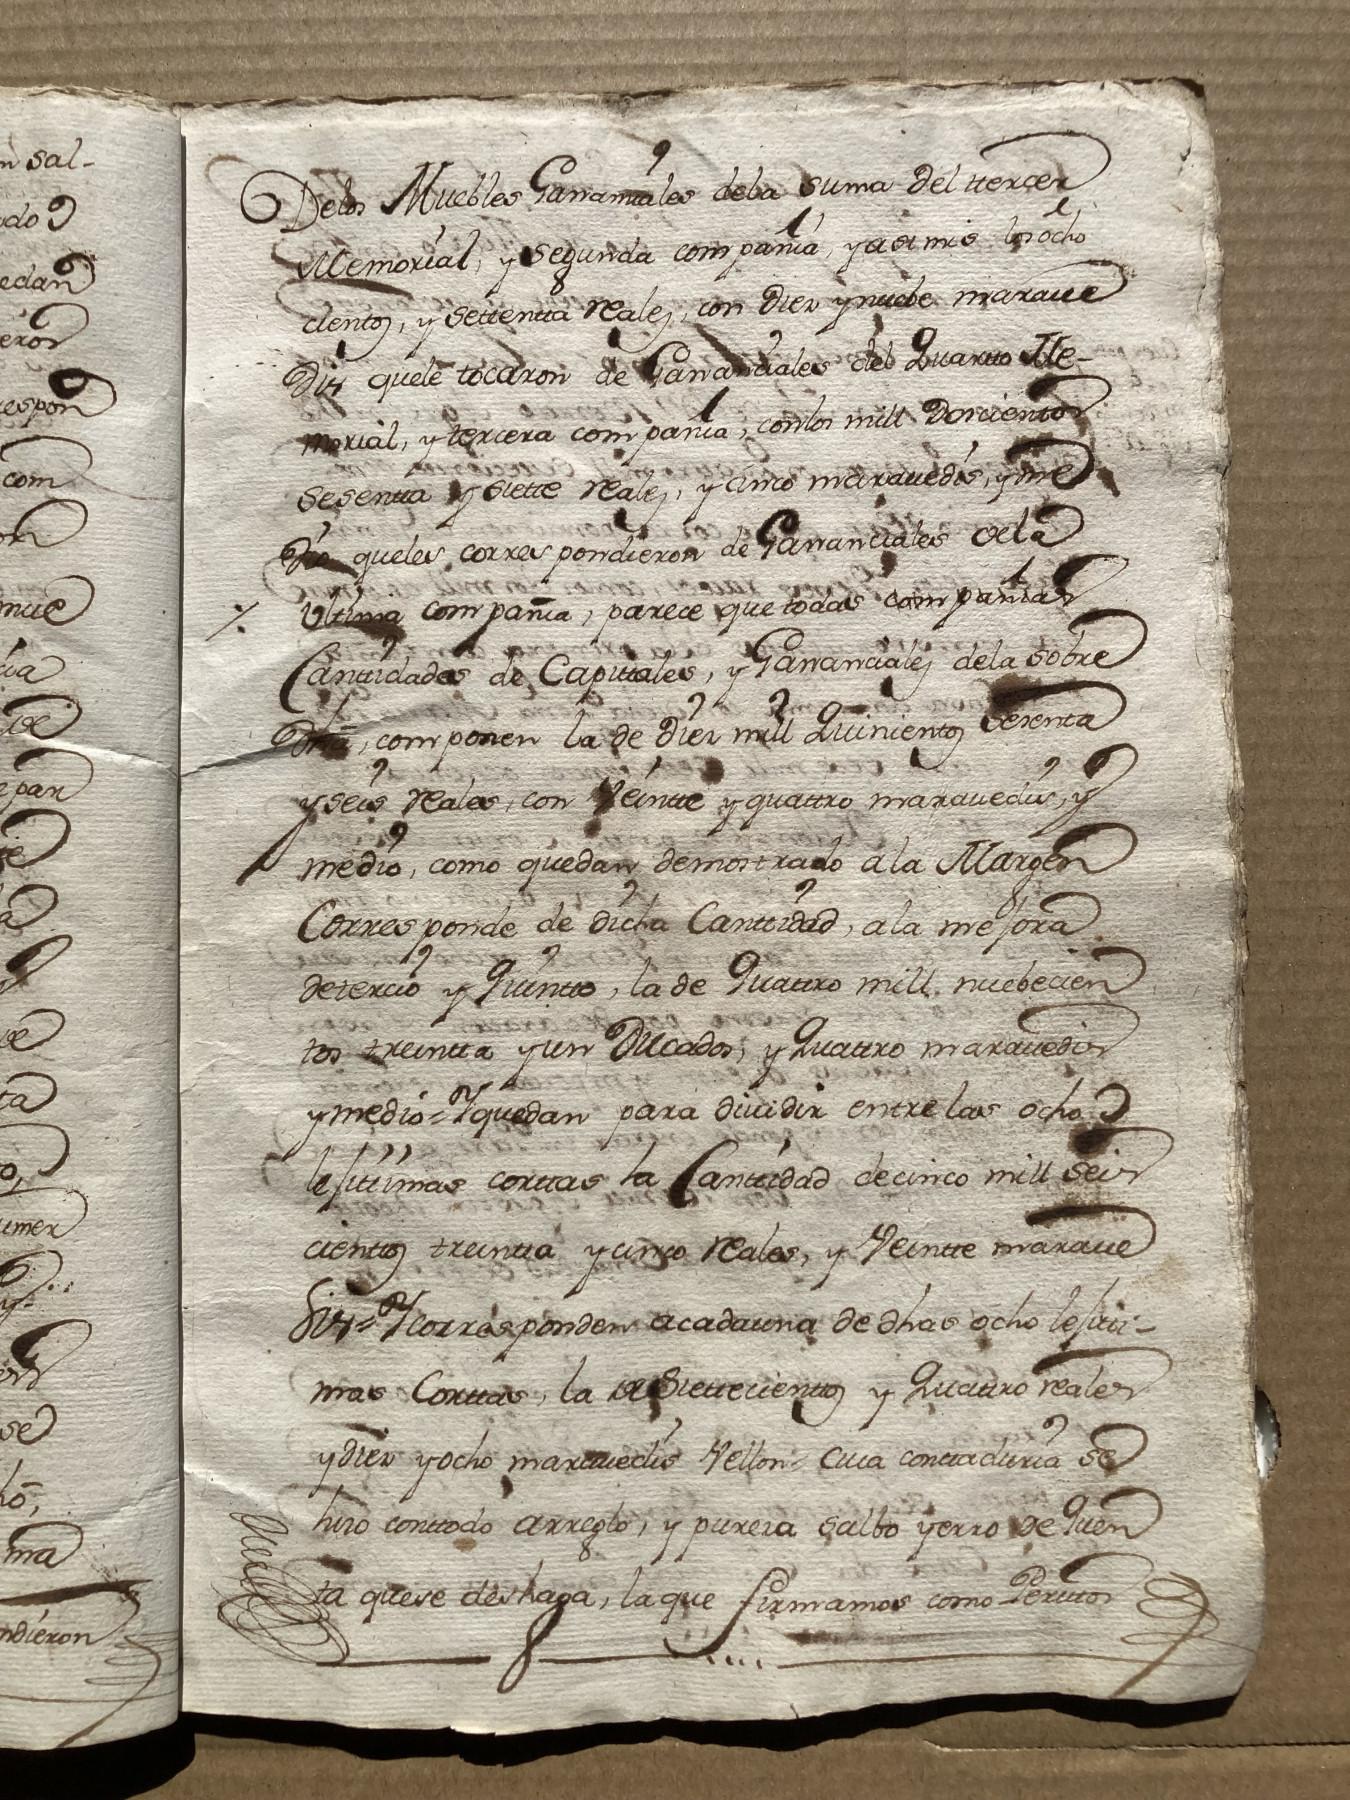 n sal-
ado
edan
eron
respon
com
on
mue
pan
ta
umer
se
ma
ndieron
Delos Muebles Gananciales dela suma del ttercer
Memorial, y segunda compañia, y asi mis los ocho
cientos, y settentta reales, con Diez y nuebe maraue
Dis quele tocaron de Gananciales del Quarto Me-
morial, y tercera compañia, conlos mill Doscientos
sesentta y siette reales, y cinco marauedis, y me
dio queles correspondieron de Gananciales dela
ultima compañia, parece que todas compañias
Canttidades de Capittales, y Gananciales dela sobre
dha, componen la de diez mill Quinientos sesenta
y seis reales, con Veintte y quattro marauedis, y
medio, como quedan demostrado ala Margen
Corresponde de dicha Canttidad, ala mejora
detercio y Quintto, la de Quattro mill nuebecien
tos treintta y un Ducados, y Quattro marauedis
y medio = Y quedan para diuidir entre las ocho
lejitimas corttas la Canttidad de cinco mill seis
cienttos treintta y cinco reales, y Veintte maraue
Dis = Y corresponden acadauna de dhas ocho lejiti-
mas Corttas, la de Siettecienttos y Quattro reales
y diez y ocho marauedis Vellon = cuia conttaduria se
hizo conttodo arreglo, y pureza salbo yerro de Quen
ta quese deshaga, la que firmamos como Peritos